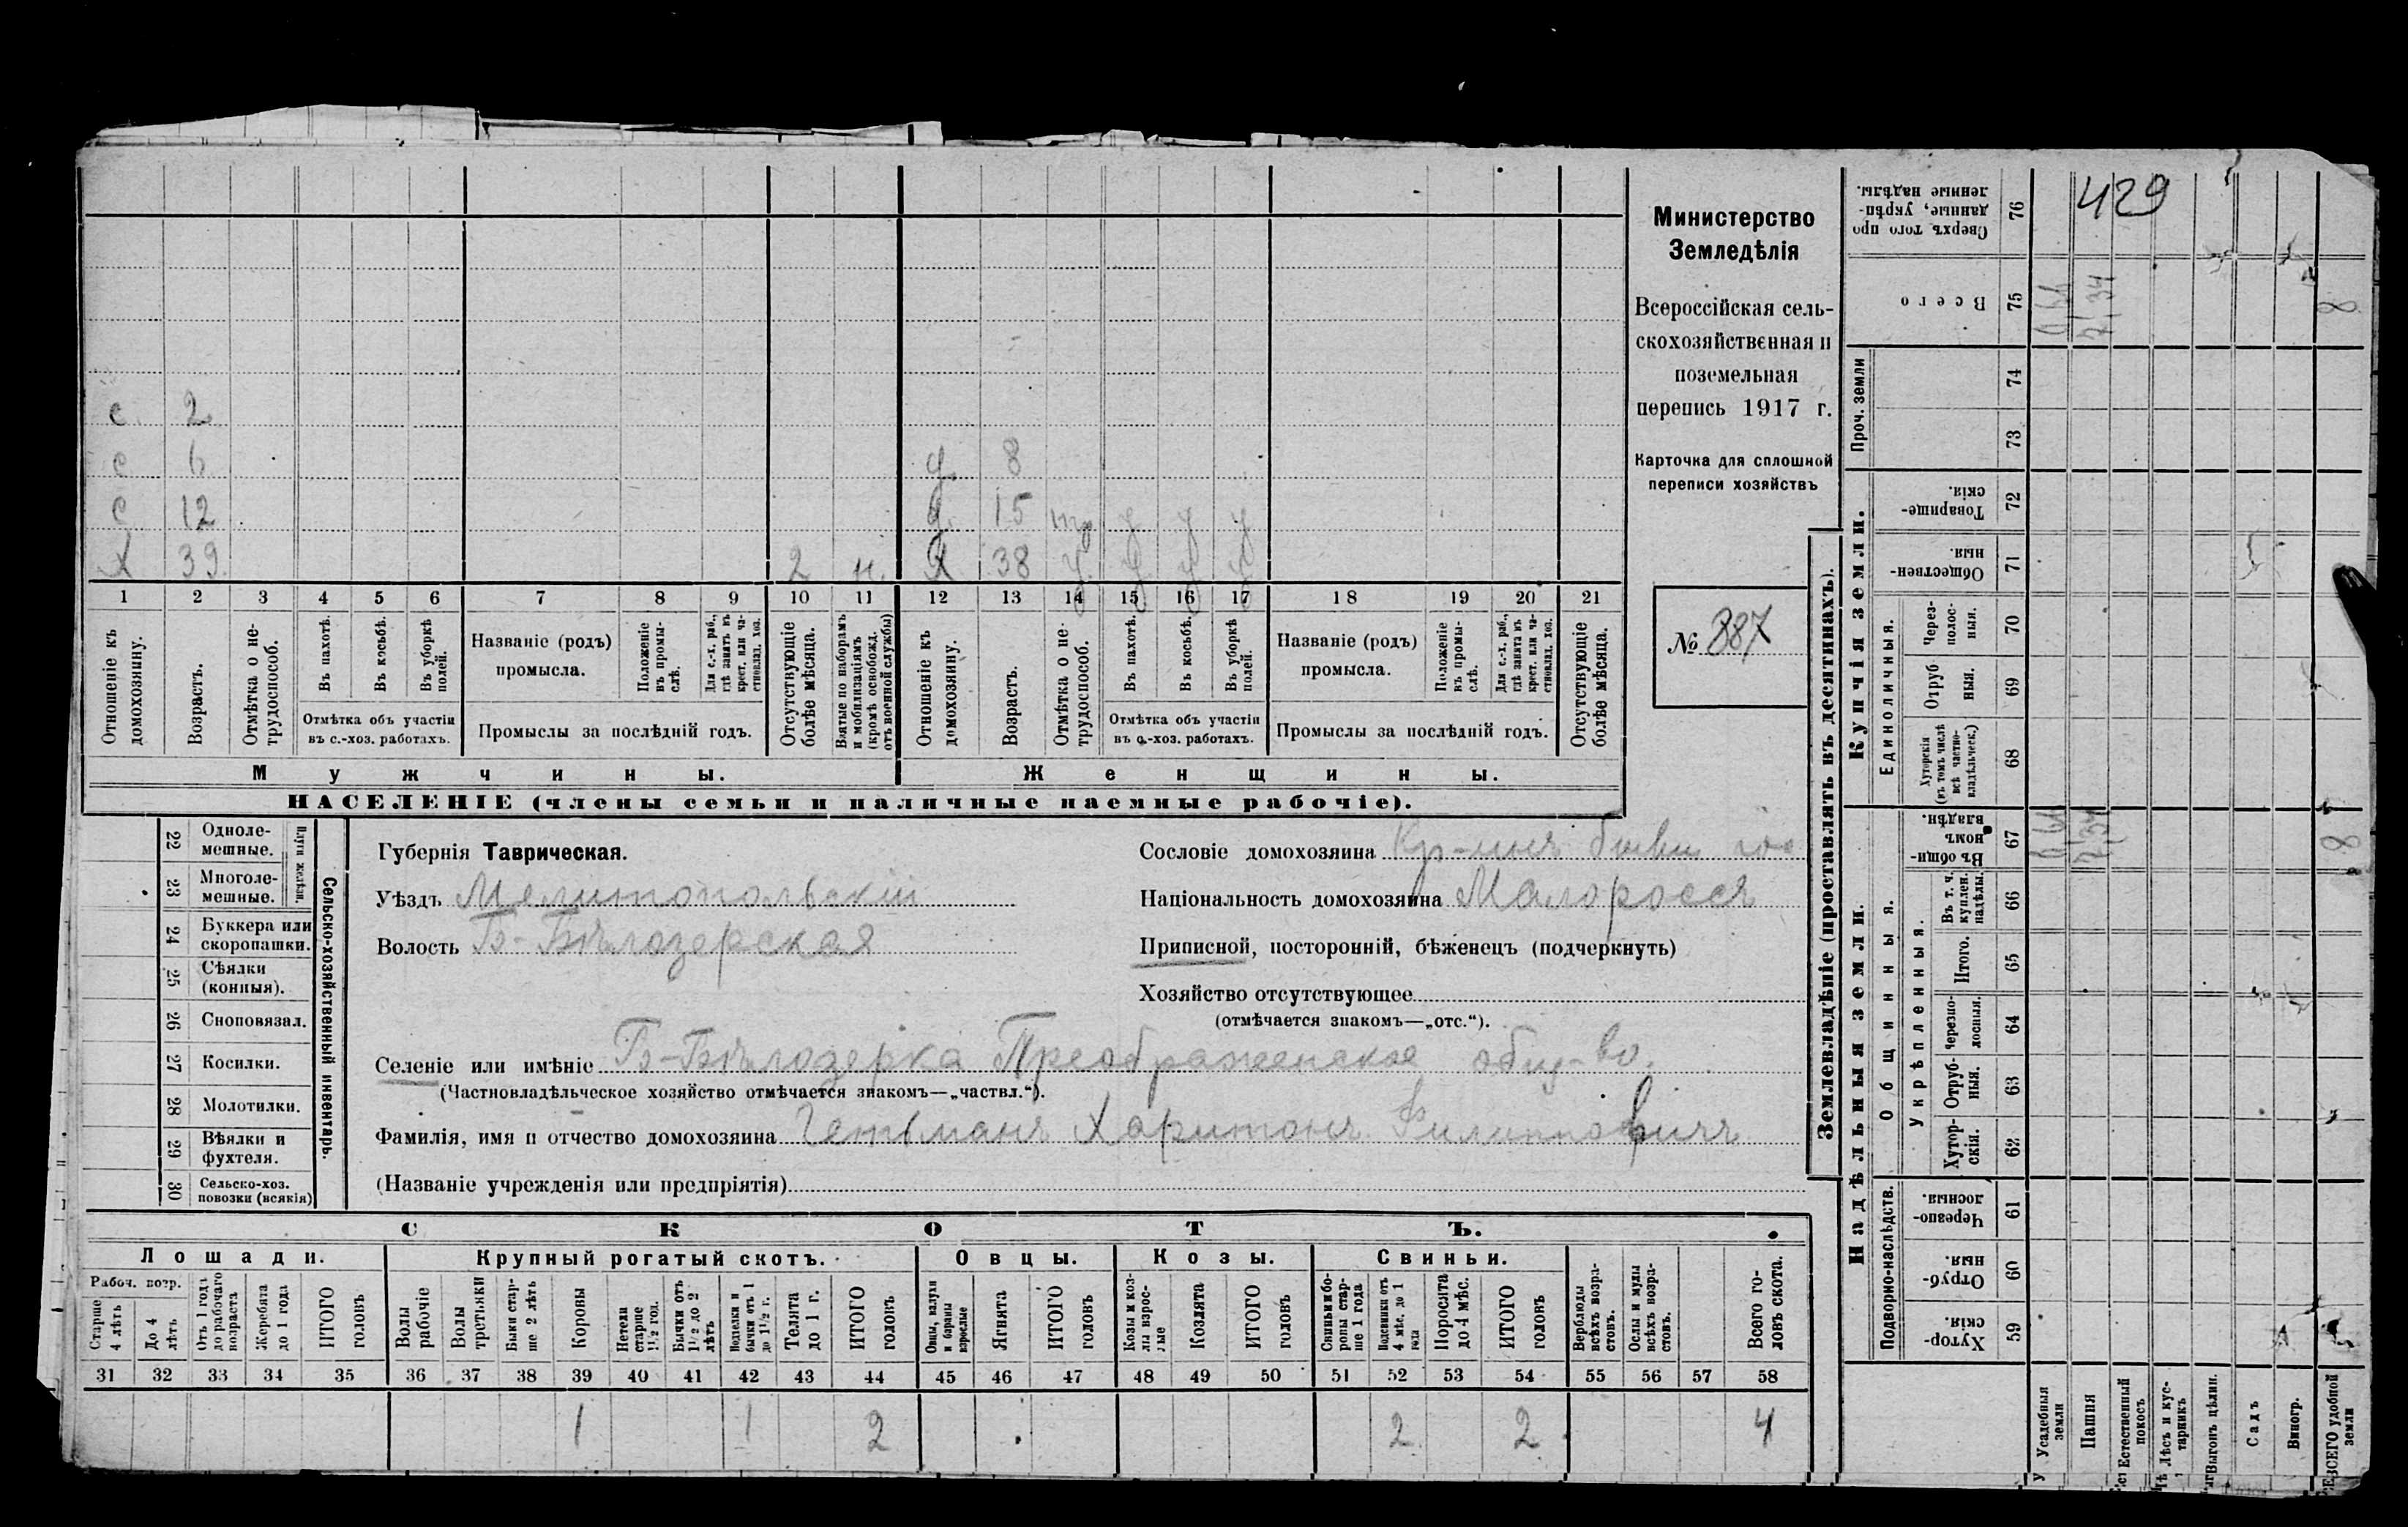 429
Министерство
Земледѣлія
Всероссійская сель-
скохозяйственная и
поземельная
перепись 1917 г.
Карточка для сплошной
переписи хозяйствъ
№ 887
с. 2
с 6 д 8
с 12 д. 15 у у у
Х 39 2 н. Х 38 у у у у
1 2 3 4 5 6 7 8 9 10 11 12 13 14 15 16 17 18 19 20 21
Отношеніе къ домохозяину.
Возрастъ.
Отмѣтка о не-трудоспособ.
Въ пахотѣ.
Въ косьбѣ.
Въ уборкѣ полей.
Отмѣтка объ участіи
въ с.-хоз. работахъ.
Названіе (родъ)
промысла.
Положеніе въ промы-слѣ.
Для с.-х. раб., гдѣ занятъ въ крест. или ча-стновлад. хоз.
Промыслы за послѣдній годъ.
Отсутствующіе болѣе мѣсяца.
Взятые по наборамъ и мобилизаціямъ (кромѣ освобожд. отъ военной службы)
Отношеніе къ домохозяину.
Возрастъ.
Отмѣтка о не-трудоспособ.
Въ пахотѣ.
Въ косьбѣ.
Въ уборкѣ полей.
Отмѣтка объ участіи
въ с.-хоз. работахъ.
Названіе (родъ)
промысла.
Положеніе въ промы-слѣ.
Для с.-х. раб., гдѣ занята въ крест. или ча-стновлад. хоз.
Промыслы за послѣдній годъ.
Отсутствующіе болѣе мѣсяца.
Мужчины.
Женщины.
НАСЕЛЕНІЕ (члены семьи и наличные наемные рабочіе).
Сельско-хозяйственный инвентарь.
Плуги желѣзн.
22 Одноле-мешные.
23 Многоле-мешные.
24 Буккера или скоропашки.
25 Сѣялки (конныя).
26 Сноповязал.
27 Косилки.
28 Молотилки.
29 Вѣялки и фухтеля.
30 Сельско-хоз. повозки (всякія)
Губернія Таврическая.
Уѣздъ Мелитопольскій
Волость Б-Бѣлозерская
Сословіе домохозяина Кр-нинъ бывш гос
Національность домохозяина Малороссъ
Приписной, посторонній, бѣженецъ (подчеркнуть)
Хозяйство отсутствующее
(отмѣчается знакомъ—„отс.“).
Селеніе или имѣніе Б-Бѣлозерка Преображенское общ-во.
(Частновладѣльческое хозяйство отмѣчается знакомъ—„частвл.“).
Фамилія, имя и отчество домохозяина Гетьманъ Харитонъ Филипповичъ
(Названіе учрежденія или предпріятія)
СКОТЪ.
Лошади. Крупный рогатый скотъ. Овцы. Козы. Свиньи.
Рабоч. возр.
Старше 4 лѣтъ
До 4 лѣтъ
Отъ 1 года до рабочаго возраста
Жеребята до 1 года
ИТОГО головъ
Волы рабочіе
Волы третьяки
Быки стар-ше 2 лѣтъ
Коровы
Нетели старше 1½ год.
Бычки отъ 1½ до 2 лѣтъ
бычки отъ 1 до 1½ г.
Телята до 1 г.
ИТОГО головъ
Овцы, валухи и бараны взрослые
Ягнята
ИТОГО головъ
Козы и коз-лы взрос-лые
Козлята
ИТОГО головъ
Свиньи и бо-ровы стар-ше 1 года
4 мѣс. до 1 года
Поросята до 4 мѣс.
ИТОГО головъ
Верблюды всѣхъ возра-стовъ.
Ослы и мулы всѣхъ возра-стовъ.
Всего го-ловъ скота.
31 32 33 34 35 36 37 38 39 40 41 42 43 44 45 46 47 48 49 50 51 52 53 54 55 56 57 58
1 1 2 2 2 4
Землевладѣніе (проставлять въ десятинахъ).
Надѣльныя земли.
Купчія земли.
Проч. земли
Подворно-наслѣдств.
Общинныя.
Укрѣпленныя.
Единоличныя.
76 Сверхъ того про даннные, укрѣп-ленные надѣлы.
75 Всего 7,34 8
74
73
72 Товарище-скія.
71 Обществен-ныя.
70 Через-полос-ныя.
69 Отруб ныя.
68 Хуторскія (въ томъ числѣ всѣ частно-владѣльческ.)
67 Въ общи-номъ владѣн. 7,34 8
66 Въ т. ч. куплен. надѣлы.
65 Итого.
64 Черезпо-лосныя.
63 Отруб-ныя.
62 Хутор-скія.
61 Черезпо-лосныя.
60 Отруб-ныя.
59 Хутор-скія.
Усадебныя земли
Пашня
Естественный покосъ
Лѣсъ и кус-тарникъ
Выгонъ цѣлин.
Садъ
Виногр.
ВСЕГО удобной земли